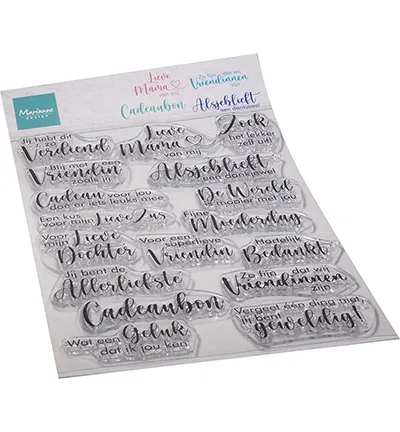 Marianne
DESIGN
Lieve
Mama
van mij
Zo fijn dat wij
Vriendinnen
zijn
Cadeaubon
Alsjeblieft
een dankjewel
Jij hebt dit
zo
Verdiend
Lieve
Mama
van mij
Zoek
het lekker
zelf uit!
Blij met een
Vriendin
zoals jij
Alsjeblieft
een dankjewel
Cadeau voor jou
doe er iets leuks mee
De Wereld
mooier met jou
Een kus
voor mijn Lieve Zus
Fijne
Moederdag
Voor
mijn Lieve
Dochter
Voor een
superlieve
Vriendin
Hartelijk
Bedankt
Jij bent de
Allerliefste
Zo fijn dat wij
Vriendinnen
zijn
Cadeaubon
Vergeet één ding niet
jij bent
geweldig!
Wat een Geluk
dat ik jou ken